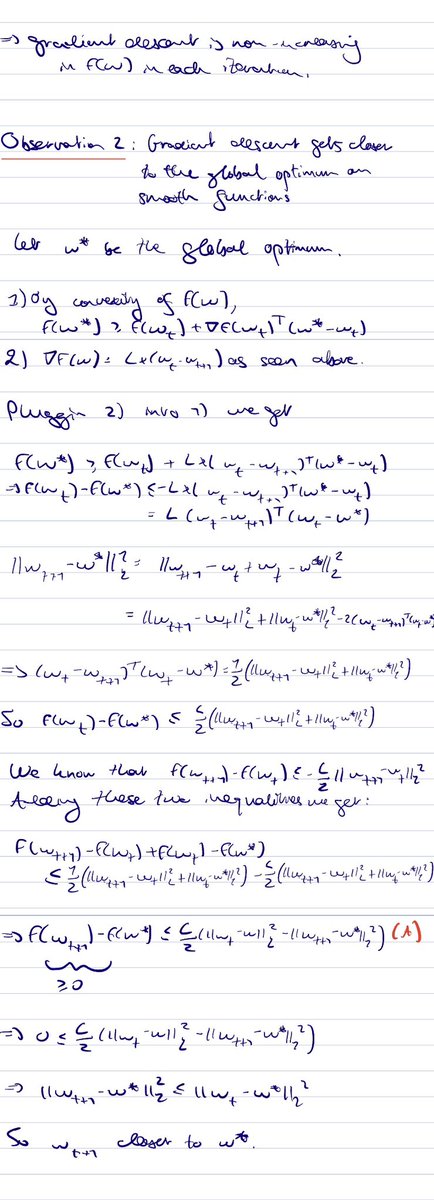 => gradient descent is non-increasing
in f(w) in each iteration.
Observation 2: Gradient descent gets closer
to the global optimum on
smooth functions
let w* be the global optimum.
1) By convexity of f(w),
f(w*) ≥ f(w_t) + ∇f(w_t)^T (w* - w_t)
2) ∇F(w) = L×(w_t - w_{t+1}) as seen above.
Pluggin 2) into 1) we get
f(w*) ≥ f(w_t) + L×(w_t - w_{t+1})^T (w* - w_t)
=> f(w_t) - f(w*) ≤ -L×(w_t - w_{t+1})^T (w* - w_t)
= L (w_t - w_{t+1})^T (w_t - w*)
||w_{t+1} - w*||_2^2 = ||w_{t+1} - w_t + w_t - w*||_2^2
= ||w_{t+1} - w_t||_2^2 + ||w_t - w*||_2^2 - 2(w_t - w_{t+1})^T (w_t - w*)
=> (w_t - w_{t+1})^T (w_t - w*) = 1/2 (||w_{t+1} - w_t||_2^2 + ||w_t - w*||_2^2)
So f(w_t) - f(w*) ≤ L/2 (||w_{t+1} - w_t||_2^2 + ||w_t - w*||_2^2)
We know that f(w_{t+1}) - f(w_t) ≤ -L/2 ||w_{t+1} - w_t||_2^2
these two inequalities we get:
F(w_{t+1}) - f(w_t) + f(w_t) - f(w*)
≤ 1/2 (||w_{t+1} - w_t||_2^2 + ||w_t - w*||_2^2) - L/2 (||w_{t+1} - w_t||_2^2 + ||w_t - w*||_2^2)
=> f(w_{t+1}) - f(w*) ≤ L/2 (||w_t - w||_2^2 - ||w_{t+1} - w*||_2^2) (A)
≥0
=> 0 ≤ L/2 (||w_t - w||_2^2 - ||w_{t+1} - w*||_2^2)
=> ||w_{t+1} - w*||_2^2 ≤ ||w_t - w*||_2^2
So w_{t+1} closer to w*.